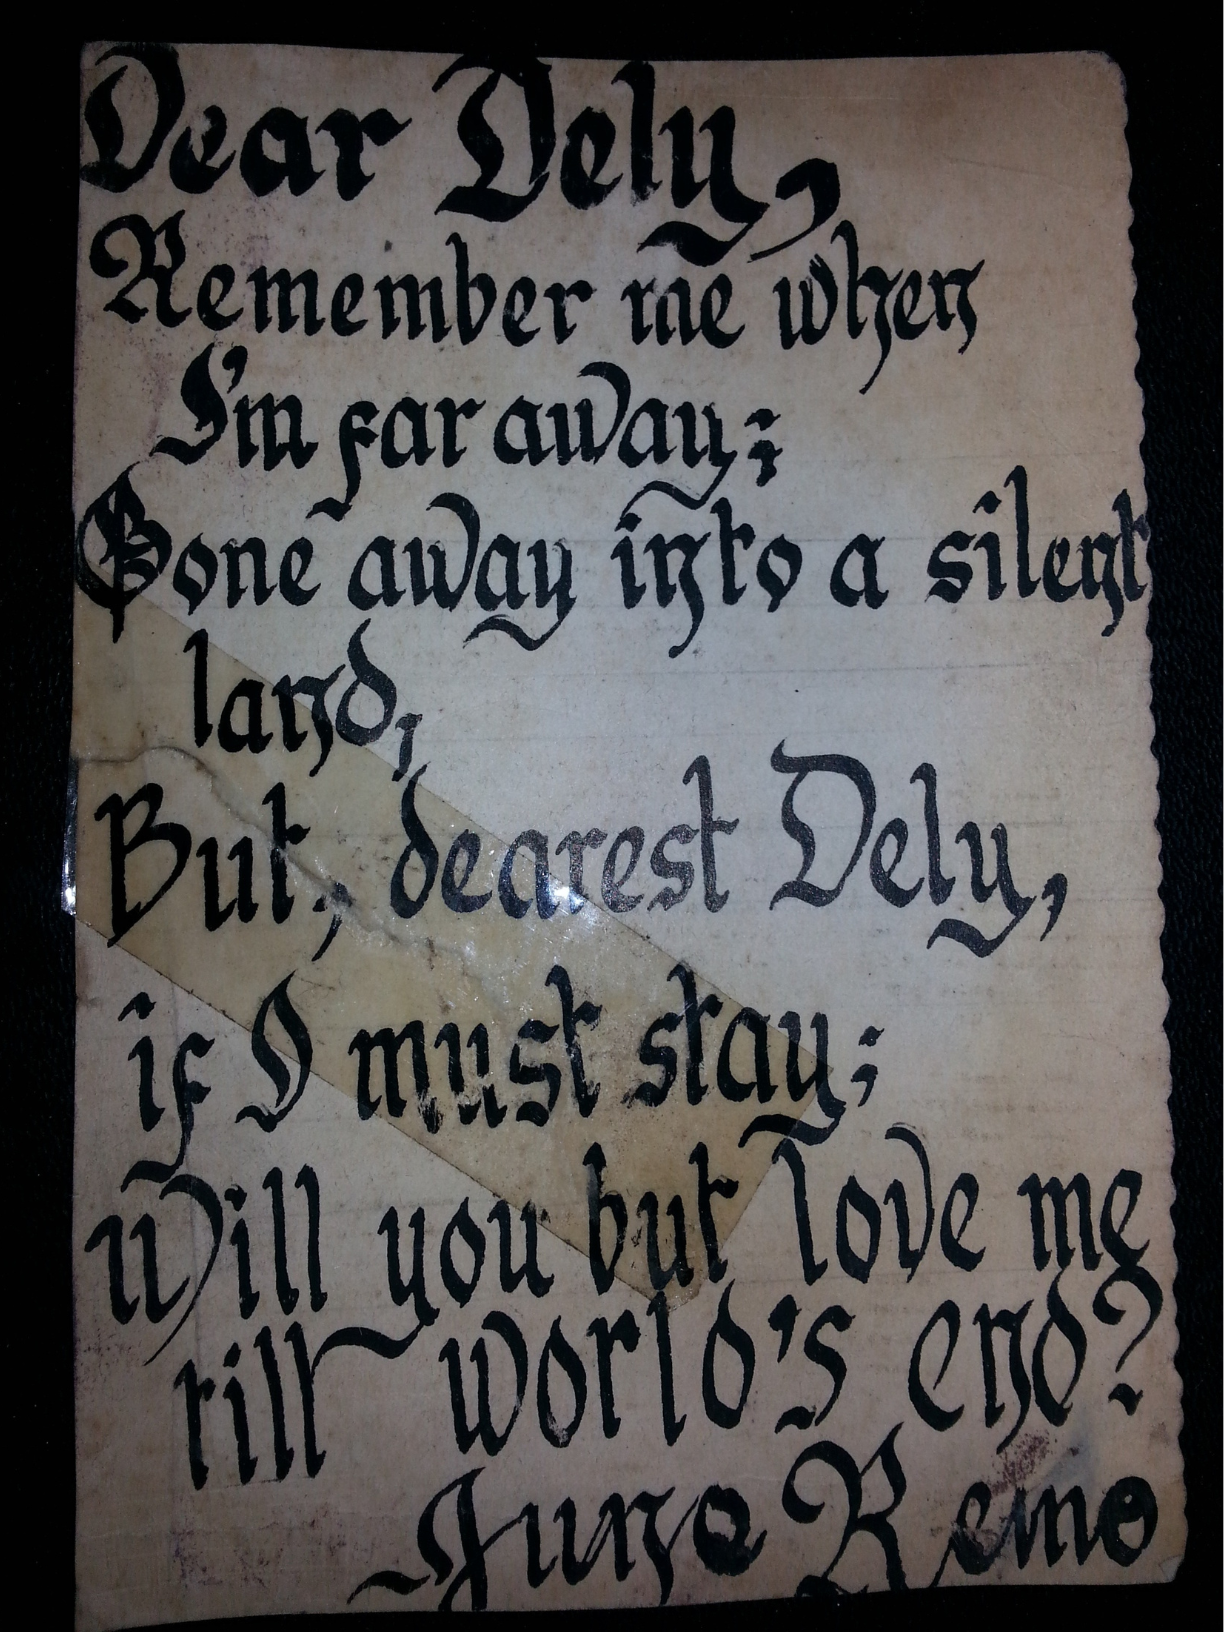 Dear Dely,
Remember me when
I'm far away;
Gone away into a silent
land,
But, dearest Dely,
if I must stay;
will you but love me
till world's end?
Juno Remo